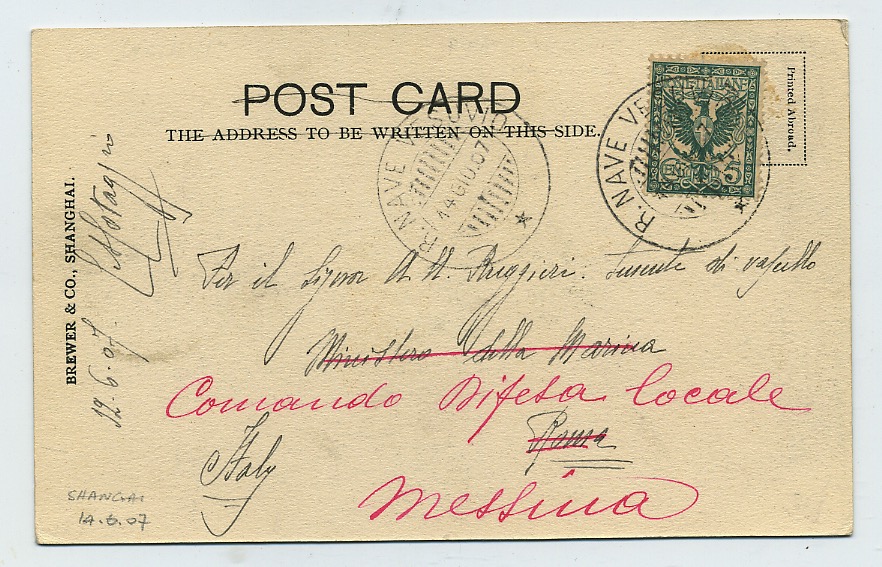 POST CARD
THE ADDRESS TO BE WRITTEN ON THIS SIDE.
Printed Abroad.
R. NAVE VESUVIO
14 GIU. 07
R. NAVE VE
POSTE ITALIANE
CENTESIMI 5
BREWER & CO., SHANGHAI.
12.6.07.
Per il Signor A. Ruggieri. Tenente di vascello
Ministero della Marina
Comando Difesa locale
Roma
Italy
Messina
SHANGAI
14.6.07